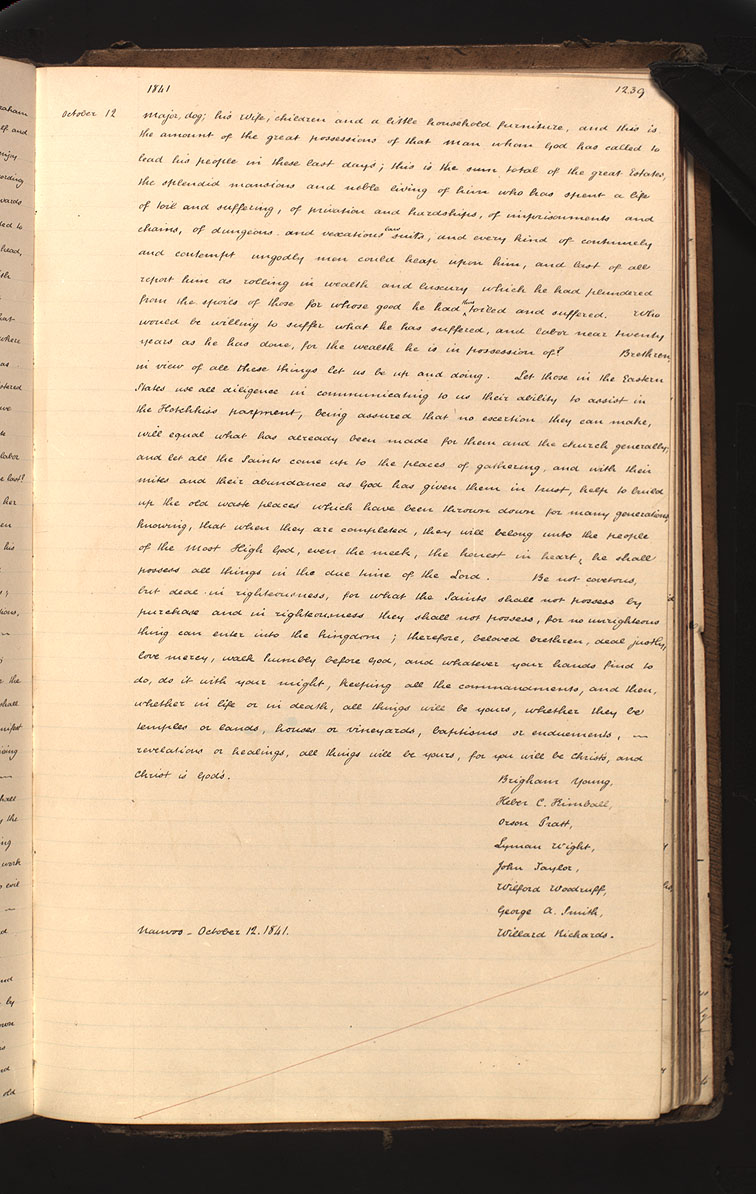 1841 1239
October 12 Major, dog; his wife, children and a little household furniture, and this is
the amount of the great possessions of that man whom God has called to
lead his people in these last days; this is the sum total of the great Estates,
the splendid mansions and noble living of him who has spent a life
of toil and suffering, of privation and hardships, of imprisonments and
chains, of dungeons and vexatious law suits, and every kind of contumely
and contempt ungodly men could heap upon him, and last of all
report him as rolling in wealth and luxury which he had plundered
from the spoils of those for whose good he had thus toiled and suffered. Who
would be willing to suffer what he has suffered, and labor near twenty
years as he has done, for the wealth he is in possession of? Brethren,
in view of all these things let us be up and doing. Let those in the Eastern
States use all diligence in communicating to us their ability to assist in
the Hotchkiss payment, being assured that no exertion they can make,
will equal what has already been made for them and the church generally;
and let all the Saints come up to the places of gathering, and with their
mites and their abundance as God has given them in trust, help to build
up the old waste places which have been thrown down for many generations,
knowing, that when they are completed, they will belong unto the people
of the Most High God, even the meek, the honest in heart, he shall
possess all things in the due time of the Lord. Be not covetous,
but deal in righteousness, for what the Saints shall not possess by
purchase and in righteousness they shall not possess, for no unrighteous
thing can enter into the kingdom; therefore, beloved brethren, deal justly,
love mercy, walk humbly before God, and whatever your hands find to
do, do it with your might, keeping all the commandments, and then,
whether in life or in death, all things will be yours, whether they be
temples or lands, houses or vineyards, baptisms or enduements, —
revelations or healings, all things will be yours, for you will be Christs, and
Christ is Gods.
Brigham Young,
Heber C. Kimball,
Orson Pratt,
Lyman Wight,
John Taylor,
Wilford Woodruff,
George A. Smith,
Nauvoo - October 12. 1841. Willard Richards.